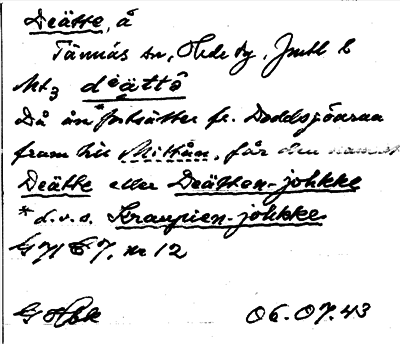 Deätte, å
Tännäs sn, Hede tg, Jmtl l
Ht3 deättə
Då ån fortsätter fr. Doddsjöarna
fram till Mittån, får den namnet
Deätte eller Deätten-johkke
* d.v.s. Kraupien-johkke
nr 12
06.07.43